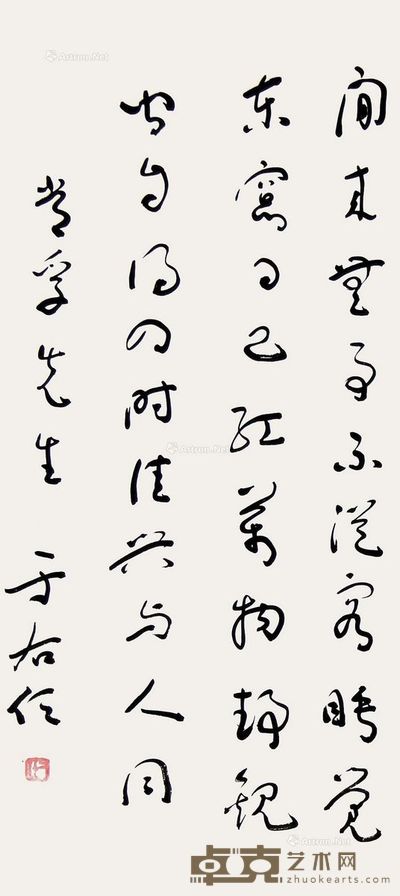 閒來無事不從容睡覺
東窗日已紅萬物靜觀
皆自得四時佳興與人同
孚先生 于右任
Artron.Net
卓克艺术网
www.zhuokearts.com